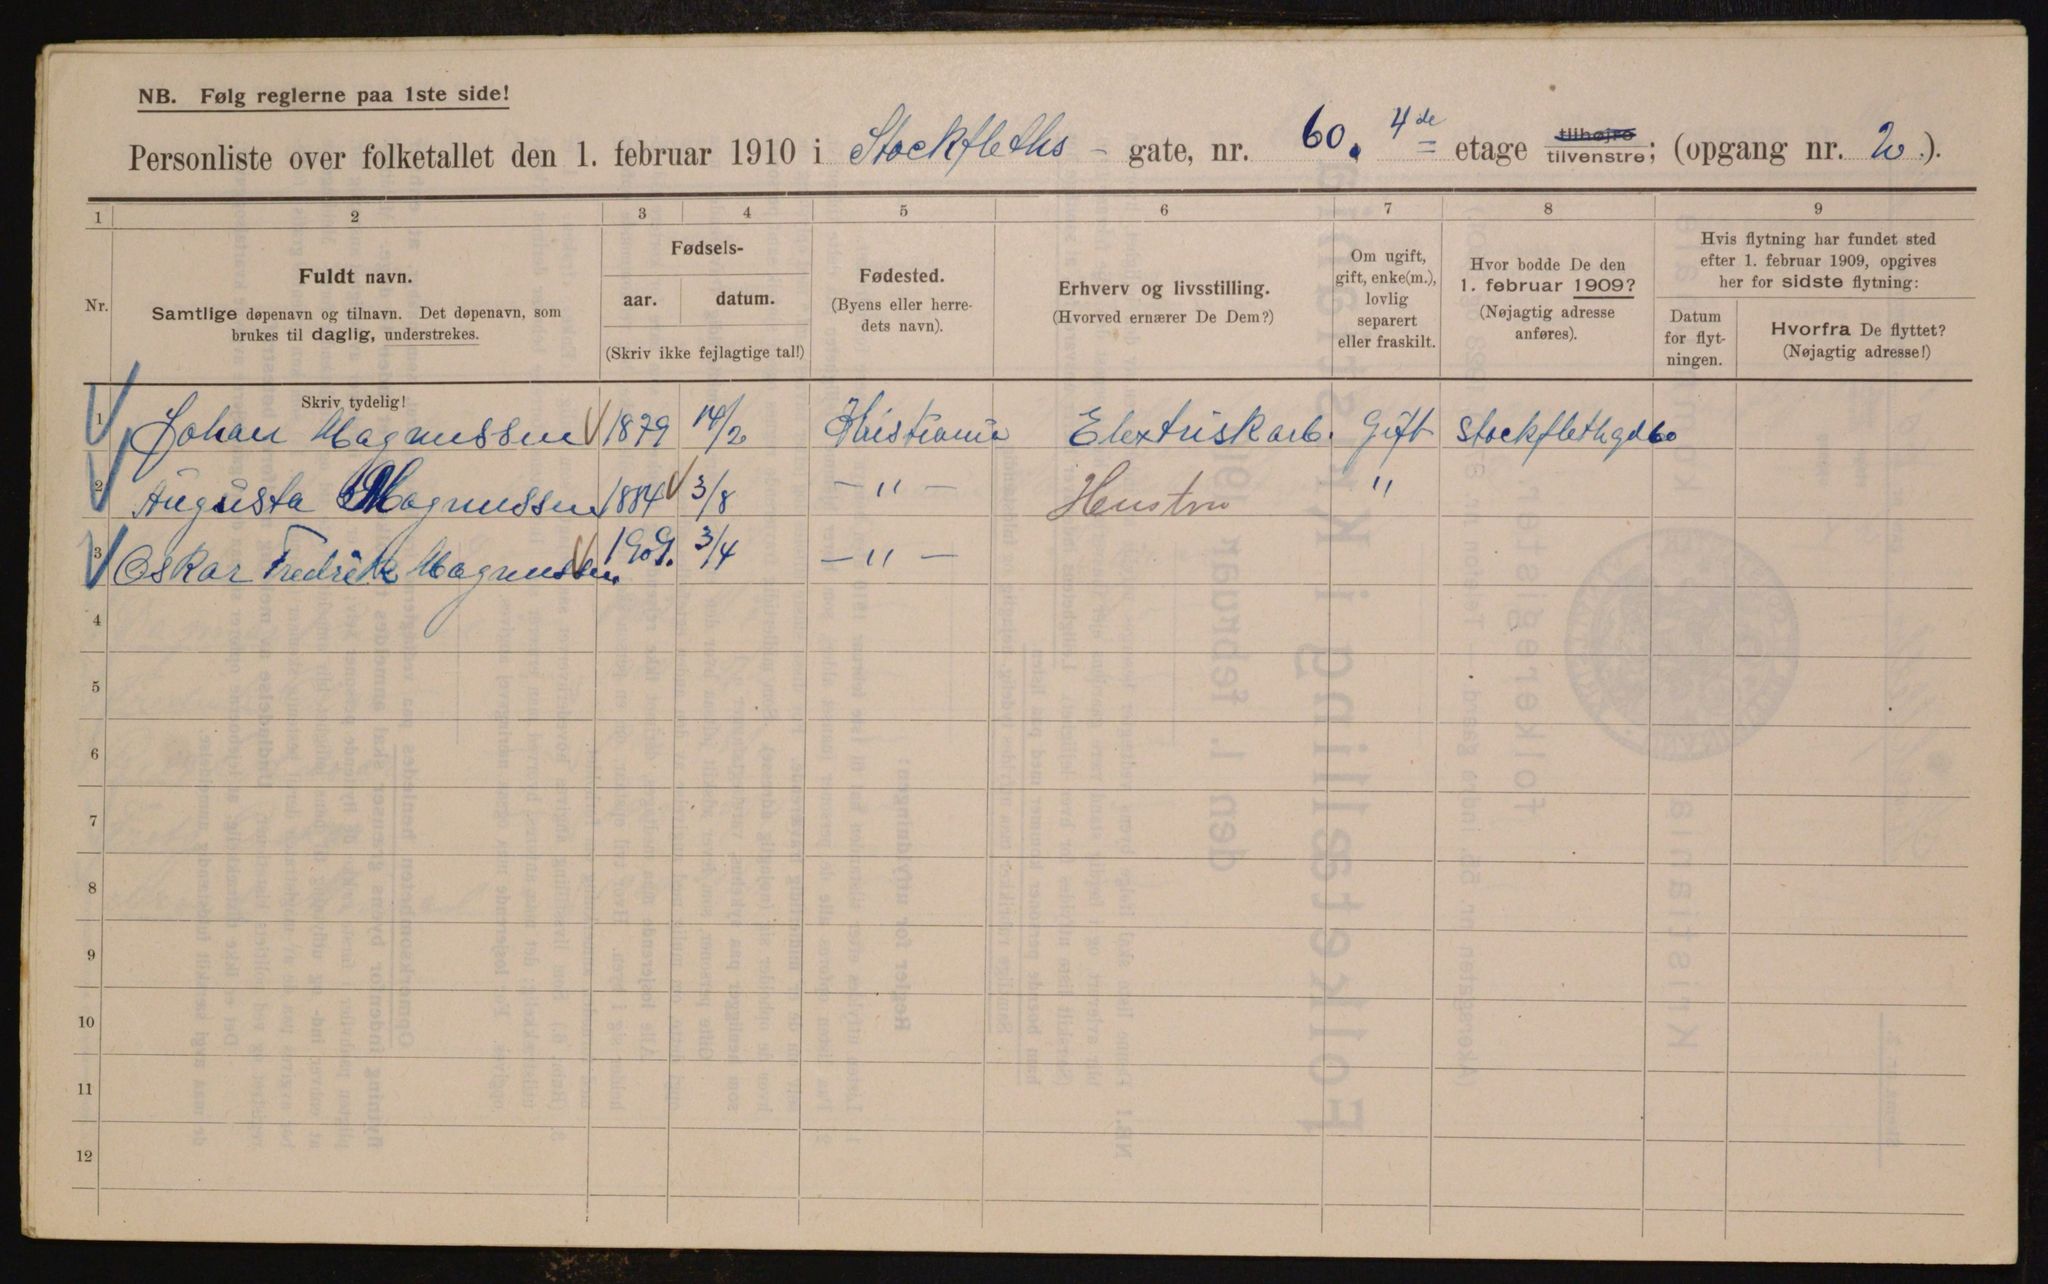 NB. Følg reglerne paa 1ste side!
Personliste over folketallet den 1. februar 1910 i Stockfleths - gate, nr. 60. 4de etage tilhøjre tilvenstre; (opgang nr. 2.).
1 2 3 4 5 6 7 8 9
Nr.
Fuldt navn.
Samtlige døpenavn og tilnavn. Det døpenavn, som
brukes til daglig, understrekes.
Fødsels-
aar. datum.
(Skriv ikke fejlagtige tal!)
Fødested.
(Byens eller herre-
dets navn).
Erhverv og livsstilling.
(Hvorved ernærer De Dem?)
Om ugift,
gift, enke(m.),
lovlig
separert
eller fraskilt.
Hvor bodde De den
1. februar 1909?
(Nøjagtig adresse
anføres).
Hvis flytning har fundet sted
efter 1. februar 1909, opgives
her for sidste flytning:
Datum
for flyt-
ningen.
Hvorfra De flyttet?
(Nøjagtig adresse!)
Skriv tydelig!
1 Johan Magnussen 1879 14/2 Kristiania Elextriskarb. Gift Stockflethgd 60
2 Augusta Magnussen 1884 3/8 — " — Hustru "
3 Oskar Fredrik Magnussen 1909. 3/4 — " —
4
5
6
7
8
9
10
11
12